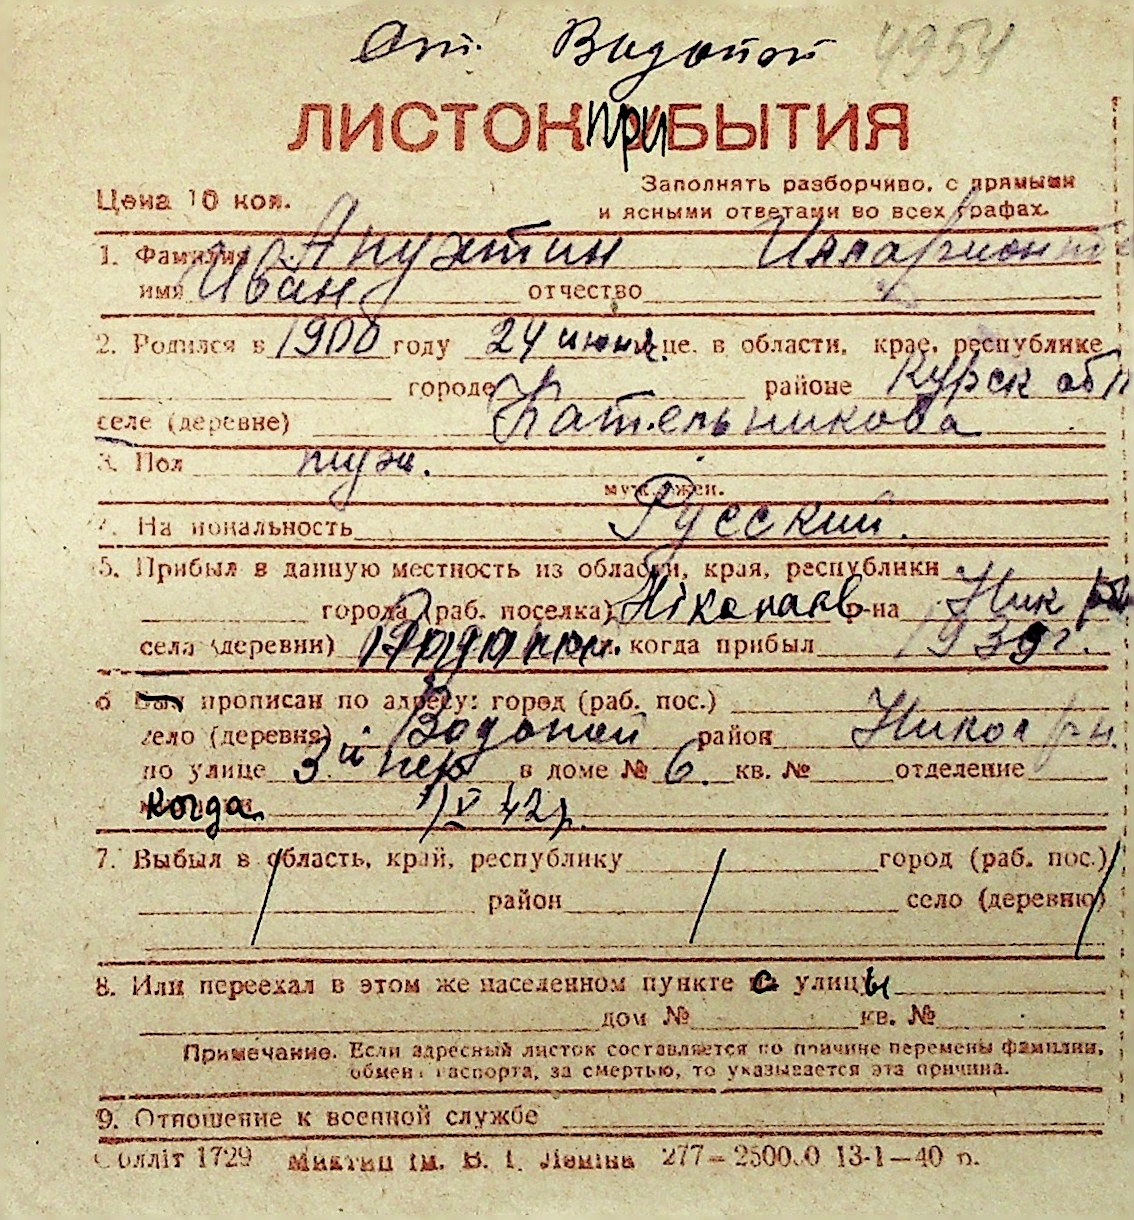 Ст. Водопой 4954
ЛИСТОК ПРИБЫТИЯ
Цена 10 коп.
Заполнять разборчиво, с прямыми
и ясными ответами во всех графах.
1. Фамилия Апухтин Илларионов
имя Иван отчество
2. Родился в 1900 году 24 июня це, в области, крае, республике
городе районе Курск обл
селе (деревне) Кательникова
3. Пол муж.
муж. жен.
4. Национальность Русский.
5. Прибыл в данную местность из области, края, республики
города (раб. поселка) Ніколаев р-на Ник
села (деревни) Водопой. когда прибыл 1939г.
6 Был прописан по адресу: город (раб. пос.)
село (деревня) Водопой район Никол р-н.
по улице 3й пер в доме № 6. кв. № отделение
когда 1/V 42г.
7. Выбыл в область, край, республику город (раб. пос.)
район село (деревню)
8. Или переехал в этом же населенном пункте с улицы
дом № кв. №
Примечание. Если адресный листок составляется по причине перемены фамилии,
обмена паспорта, за смертью, то указывается эта причина.
9. Отношение к военной службе
Облліт 1729 ім. В. І. Леніна 277—250000 13-1—40 р.